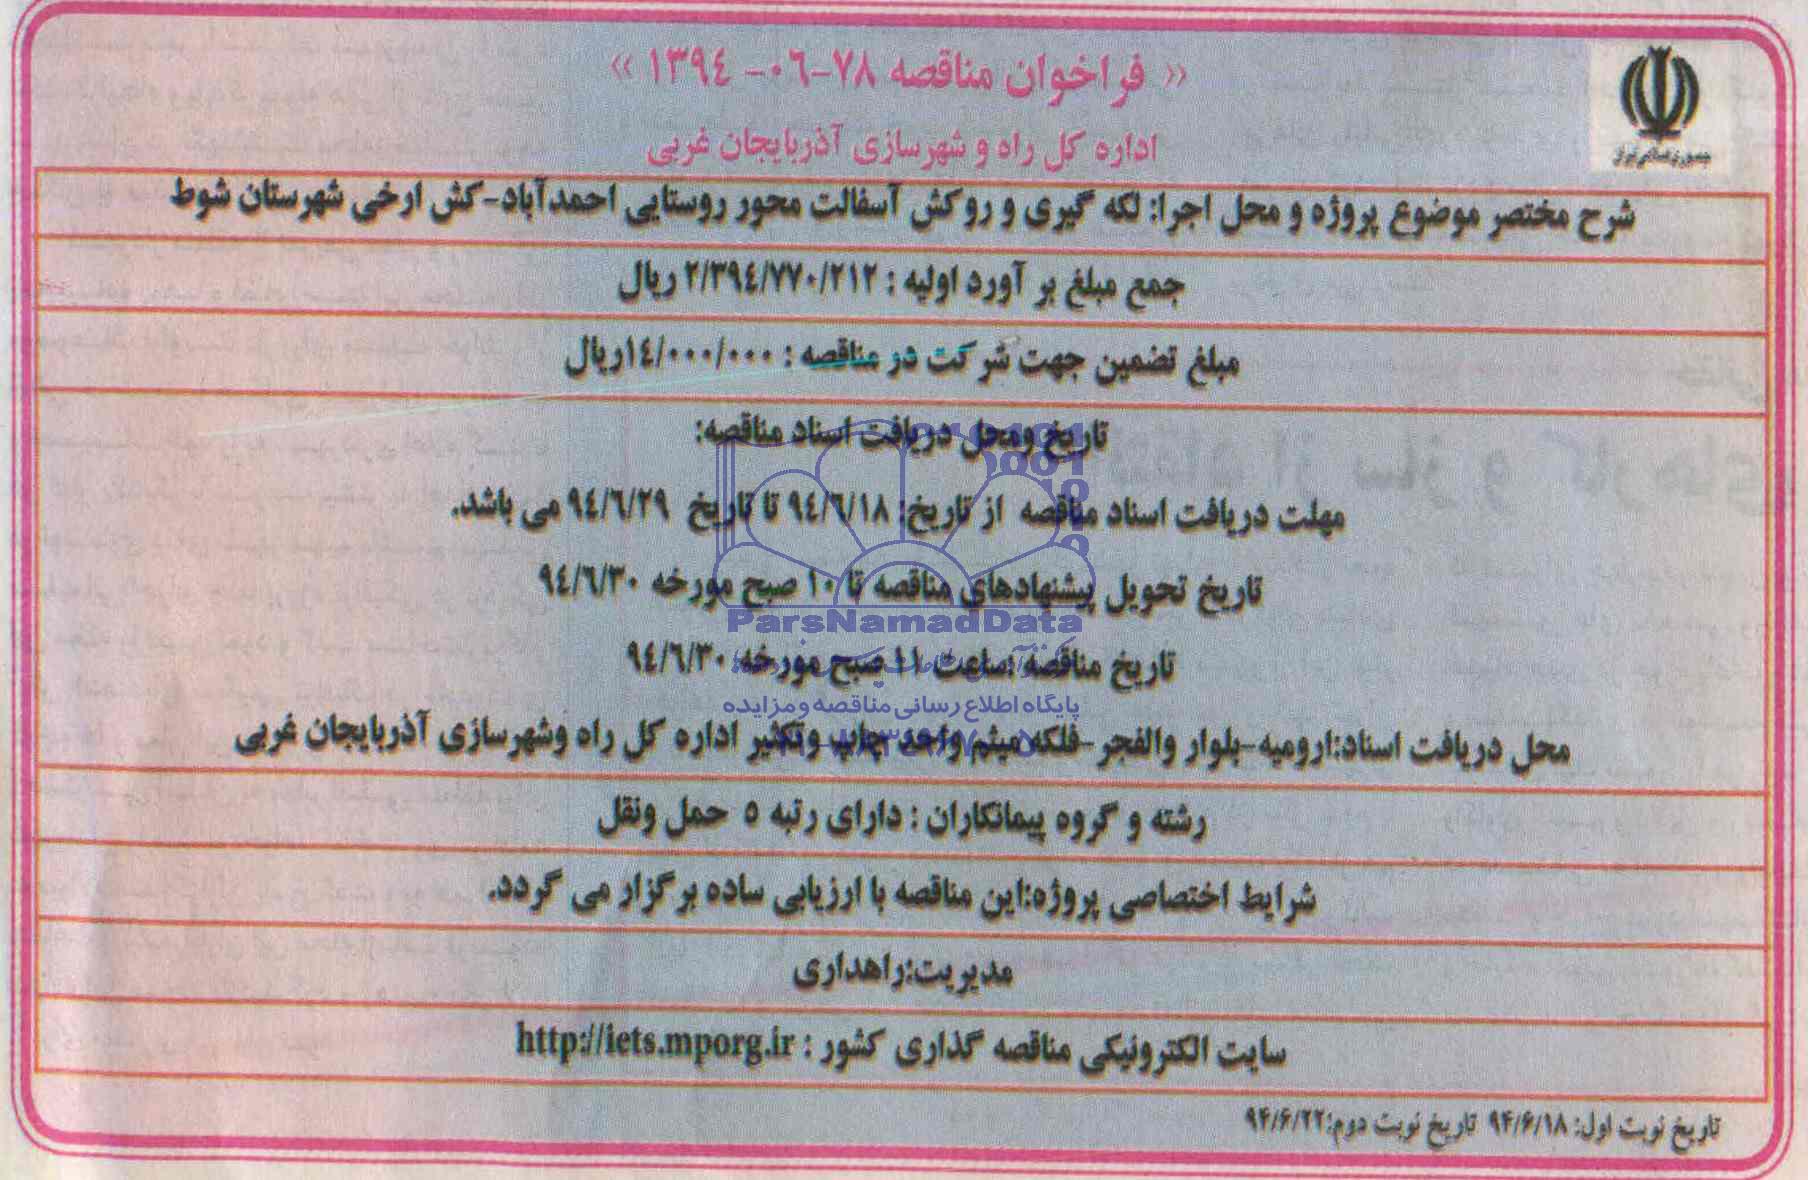 « فراخوان مناقصه ۷۸-۰۶- ۱۳۹٤ »
جمهوری اسلامی ایران
اداره کل راه و شهرسازی آذربایجان غربی
شرح مختصر موضوع پروژه و محل اجرا: لکه گیری و روکش آسفالت محور روستایی احمدآباد-کش ارخی شهرستان شوط
جمع مبلغ بر آورد اولیه : ۲/۳۹٤/۷۷۰/۲۱۲ ریال
مبلغ تضمین جهت شرکت در مناقصه : ۱٤/۰۰۰/۰۰۰ریال
تاریخ ومحل دریافت اسناد مناقصه:
مهلت دریافت اسناد مناقصه از تاریخ: ۹٤/٦/۱۸ تا تاریخ ۹٤/٦/۲۹ می باشد.
تاریخ تحویل پیشنهادهای مناقصه تا ۱۰ صبح مورخه ۹٤/٦/۳۰
ParsNamadData
تاریخ مناقصه :ساعت ۱۱ صبح مورخه ۹٤/٦/۳۰
پایگاه اطلاع رسانی مناقصه و مزایده
محل دریافت اسناد:ارومیه-بلوار والفجر-فلکه میثم واحد چاپ وتکثیر اداره کل راه وشهرسازی آذربایجان غربی
رشته و گروه پیمانکاران : دارای رتبه ۵ حمل ونقل
شرایط اختصاصی پروژه:این مناقصه با ارزیابی ساده برگزار می گردد.
مدیریت:راهداری
سایت الکترونیکی مناقصه گذاری کشور : http://iets.mporg.ir
تاریخ نوبت اول: ۹۴/۶/۱۸ تاریخ نوبت دوم:۹۴/۶/۲۲